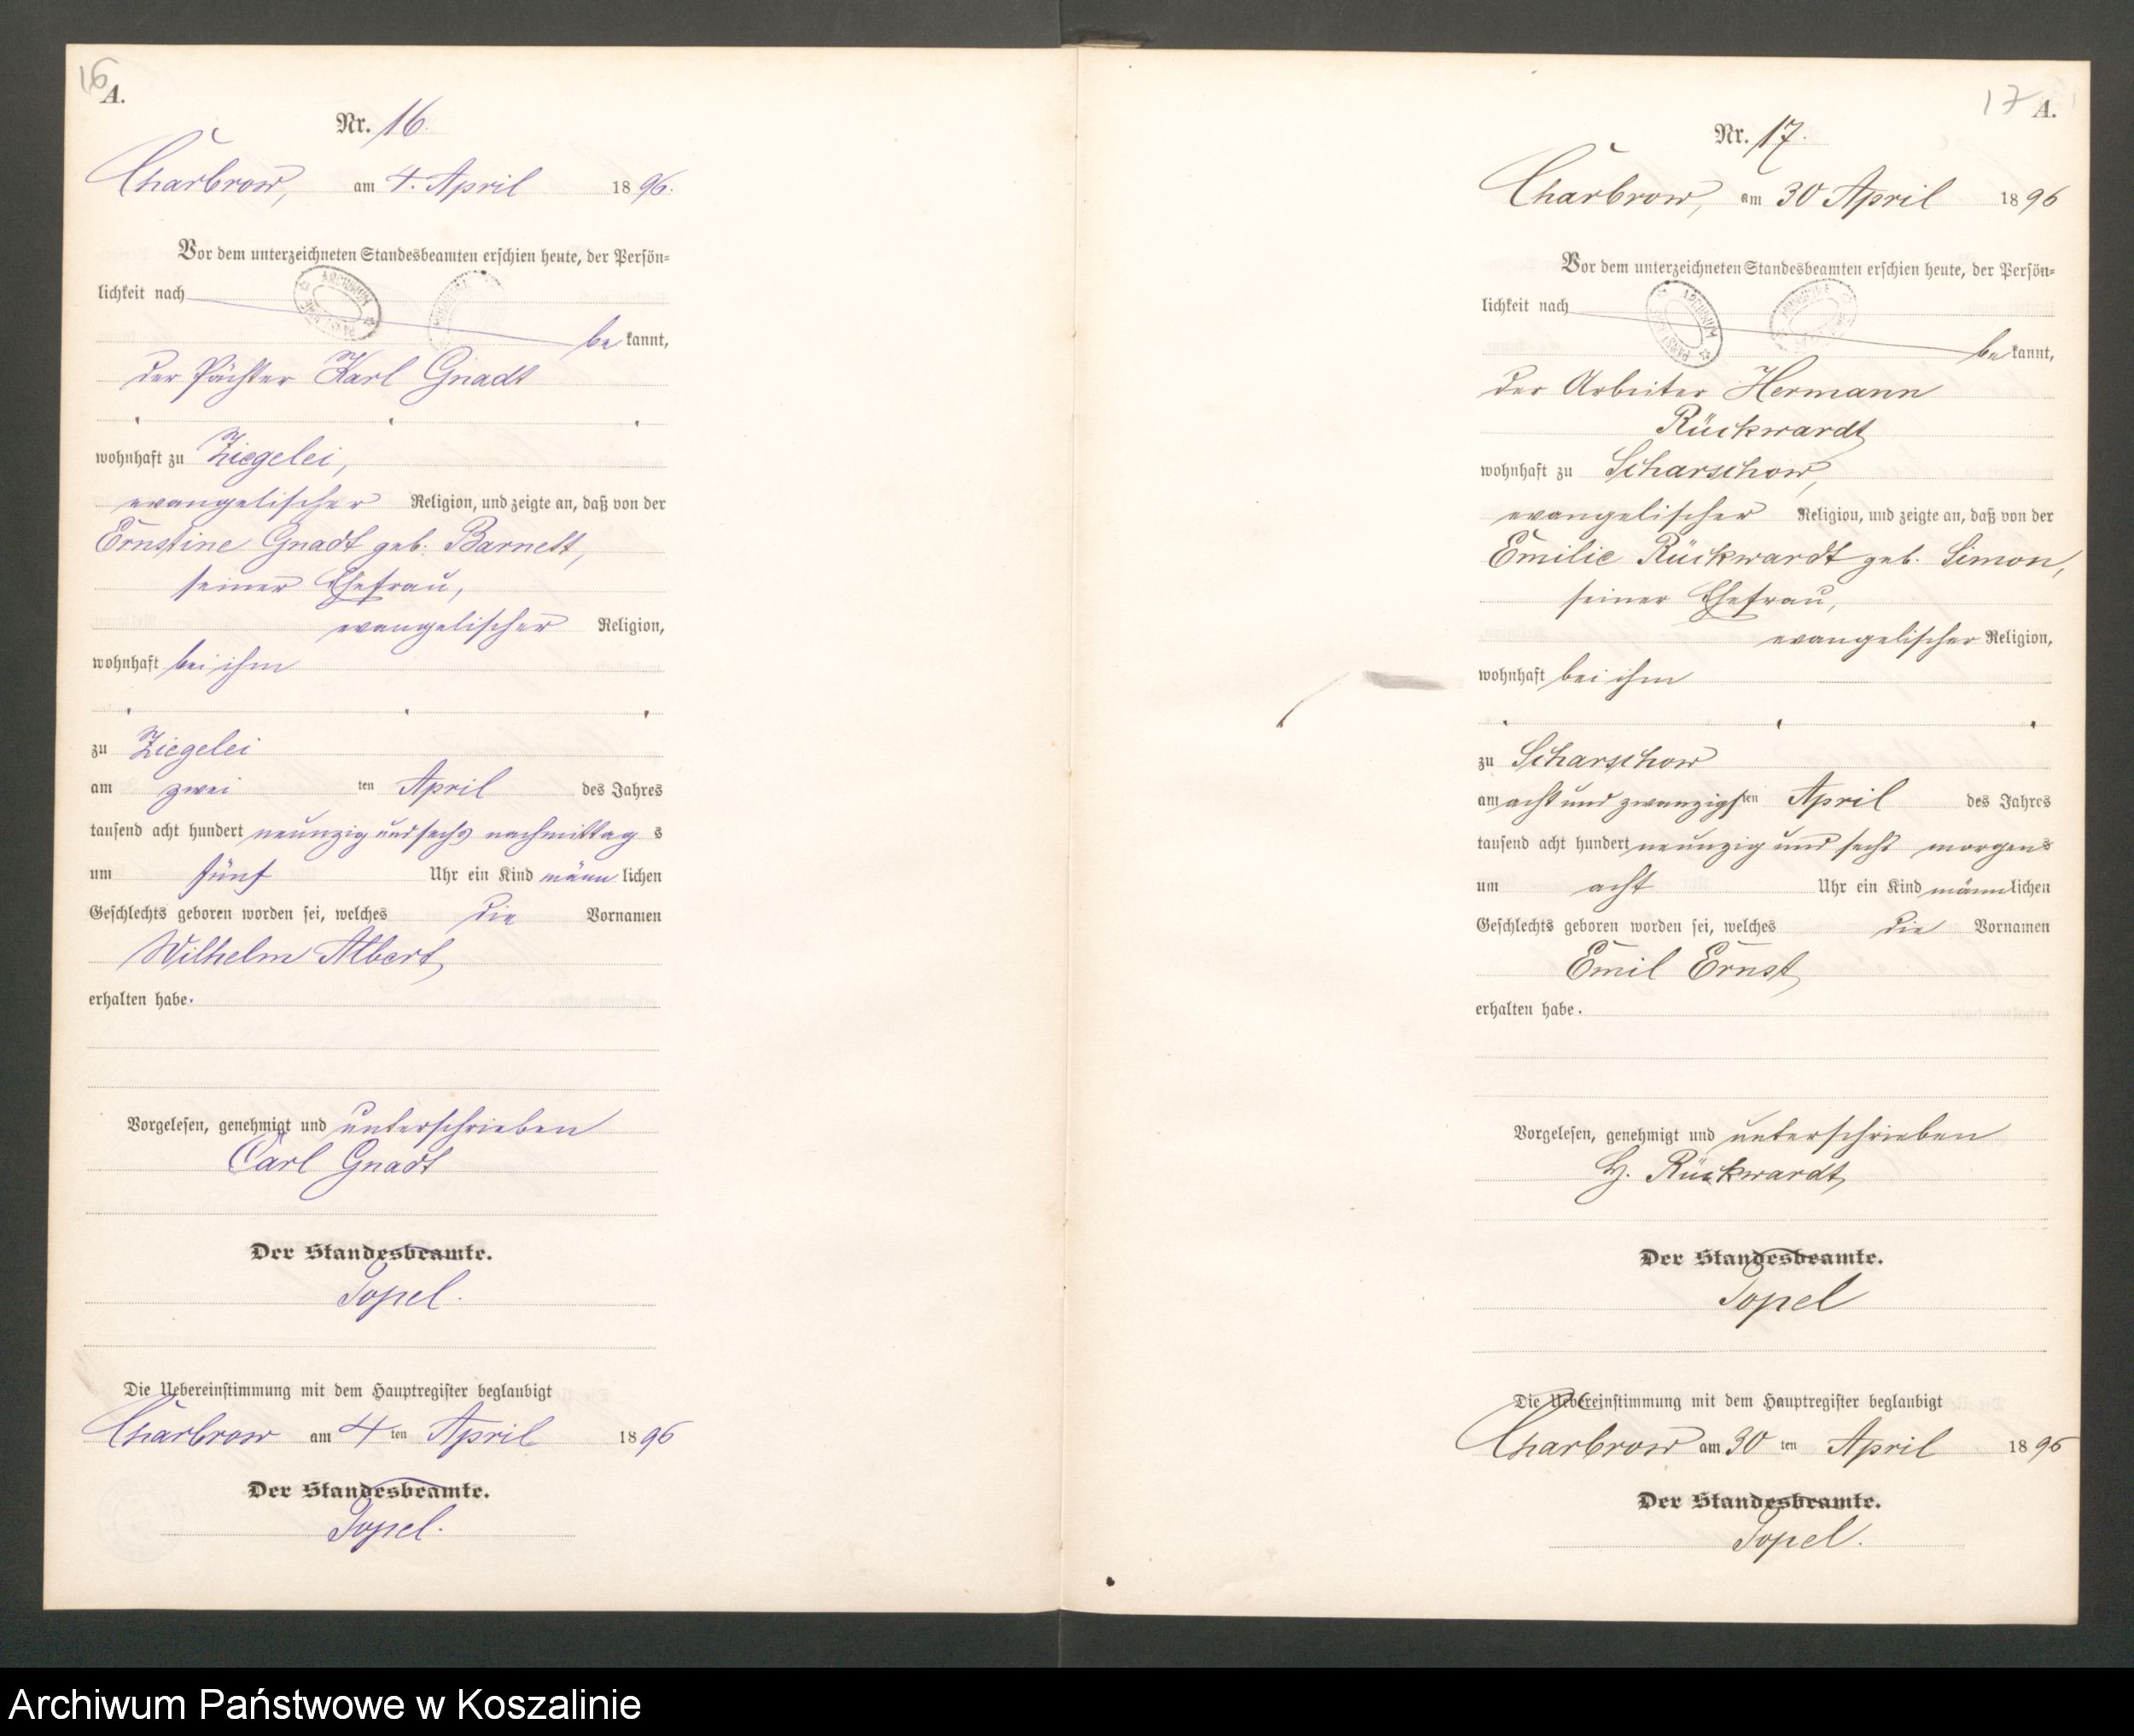 16
A.
Nr. 16.
Charbrow, am 4. April 1896.
Vor dem unterzeichneten Standesbeamten erschien heute, der Persön=
lichkeit nach
be kannt,
der Pächter Karl Gnadt
wohnhaft zu Ziegelei,
evangelischer Religion, und zeigte an, daß von der
Ernstine Gnadt geb. Barnett,
seiner Ehefrau,
evangelischer Religion,
wohnhaft bei ihm
zu Ziegelei
am zwei ten April des Jahres
tausend acht hundert neunzig und sechs nachmittag s
um fünf Uhr ein Kind männ lichen
Geschlechts geboren worden sei, welches die Vornamen
Wilhelm Albert
erhalten habe.
Vorgelesen, genehmigt und unterschrieben
Carl Gnadt
Der Standesbeamte.
Topel.
Die Uebereinstimmung mit dem Hauptregister beglaubigt
Charbrow am 4 ten April 1896
Der Standesbeamte.
Topel.
17
A.
Nr. 17.
Charbrow, am 30 April 1896
Vor dem unterzeichneten Standesbeamten erschien heute, der Persön=
lichkeit nach
be kannt,
der Arbeiter Hermann
Rückwardt
wohnhaft zu Scharschow,
evangelischer Religion, und zeigte an, daß von der
Emilie Rückwardt geb. Simon,
seiner Ehefrau,
evangelischer Religion,
wohnhaft bei ihm
zu Scharschow
am acht und zwanzigsten April des Jahres
tausend acht hundert neunzig und sechs morgens
um acht Uhr ein Kind männlichen
Geschlechts geboren worden sei, welches die Vornamen
Emil Ernst
erhalten habe.
Vorgelesen, genehmigt und unterschrieben
H. Rückwardt
Der Standesbeamte.
Topel
Die Uebereinstimmung mit dem Hauptregister beglaubigt
Charbrow am 30 ten April 1896
Der Standesbeamte.
Topel.
Archiwum Państwowe w Koszalinie